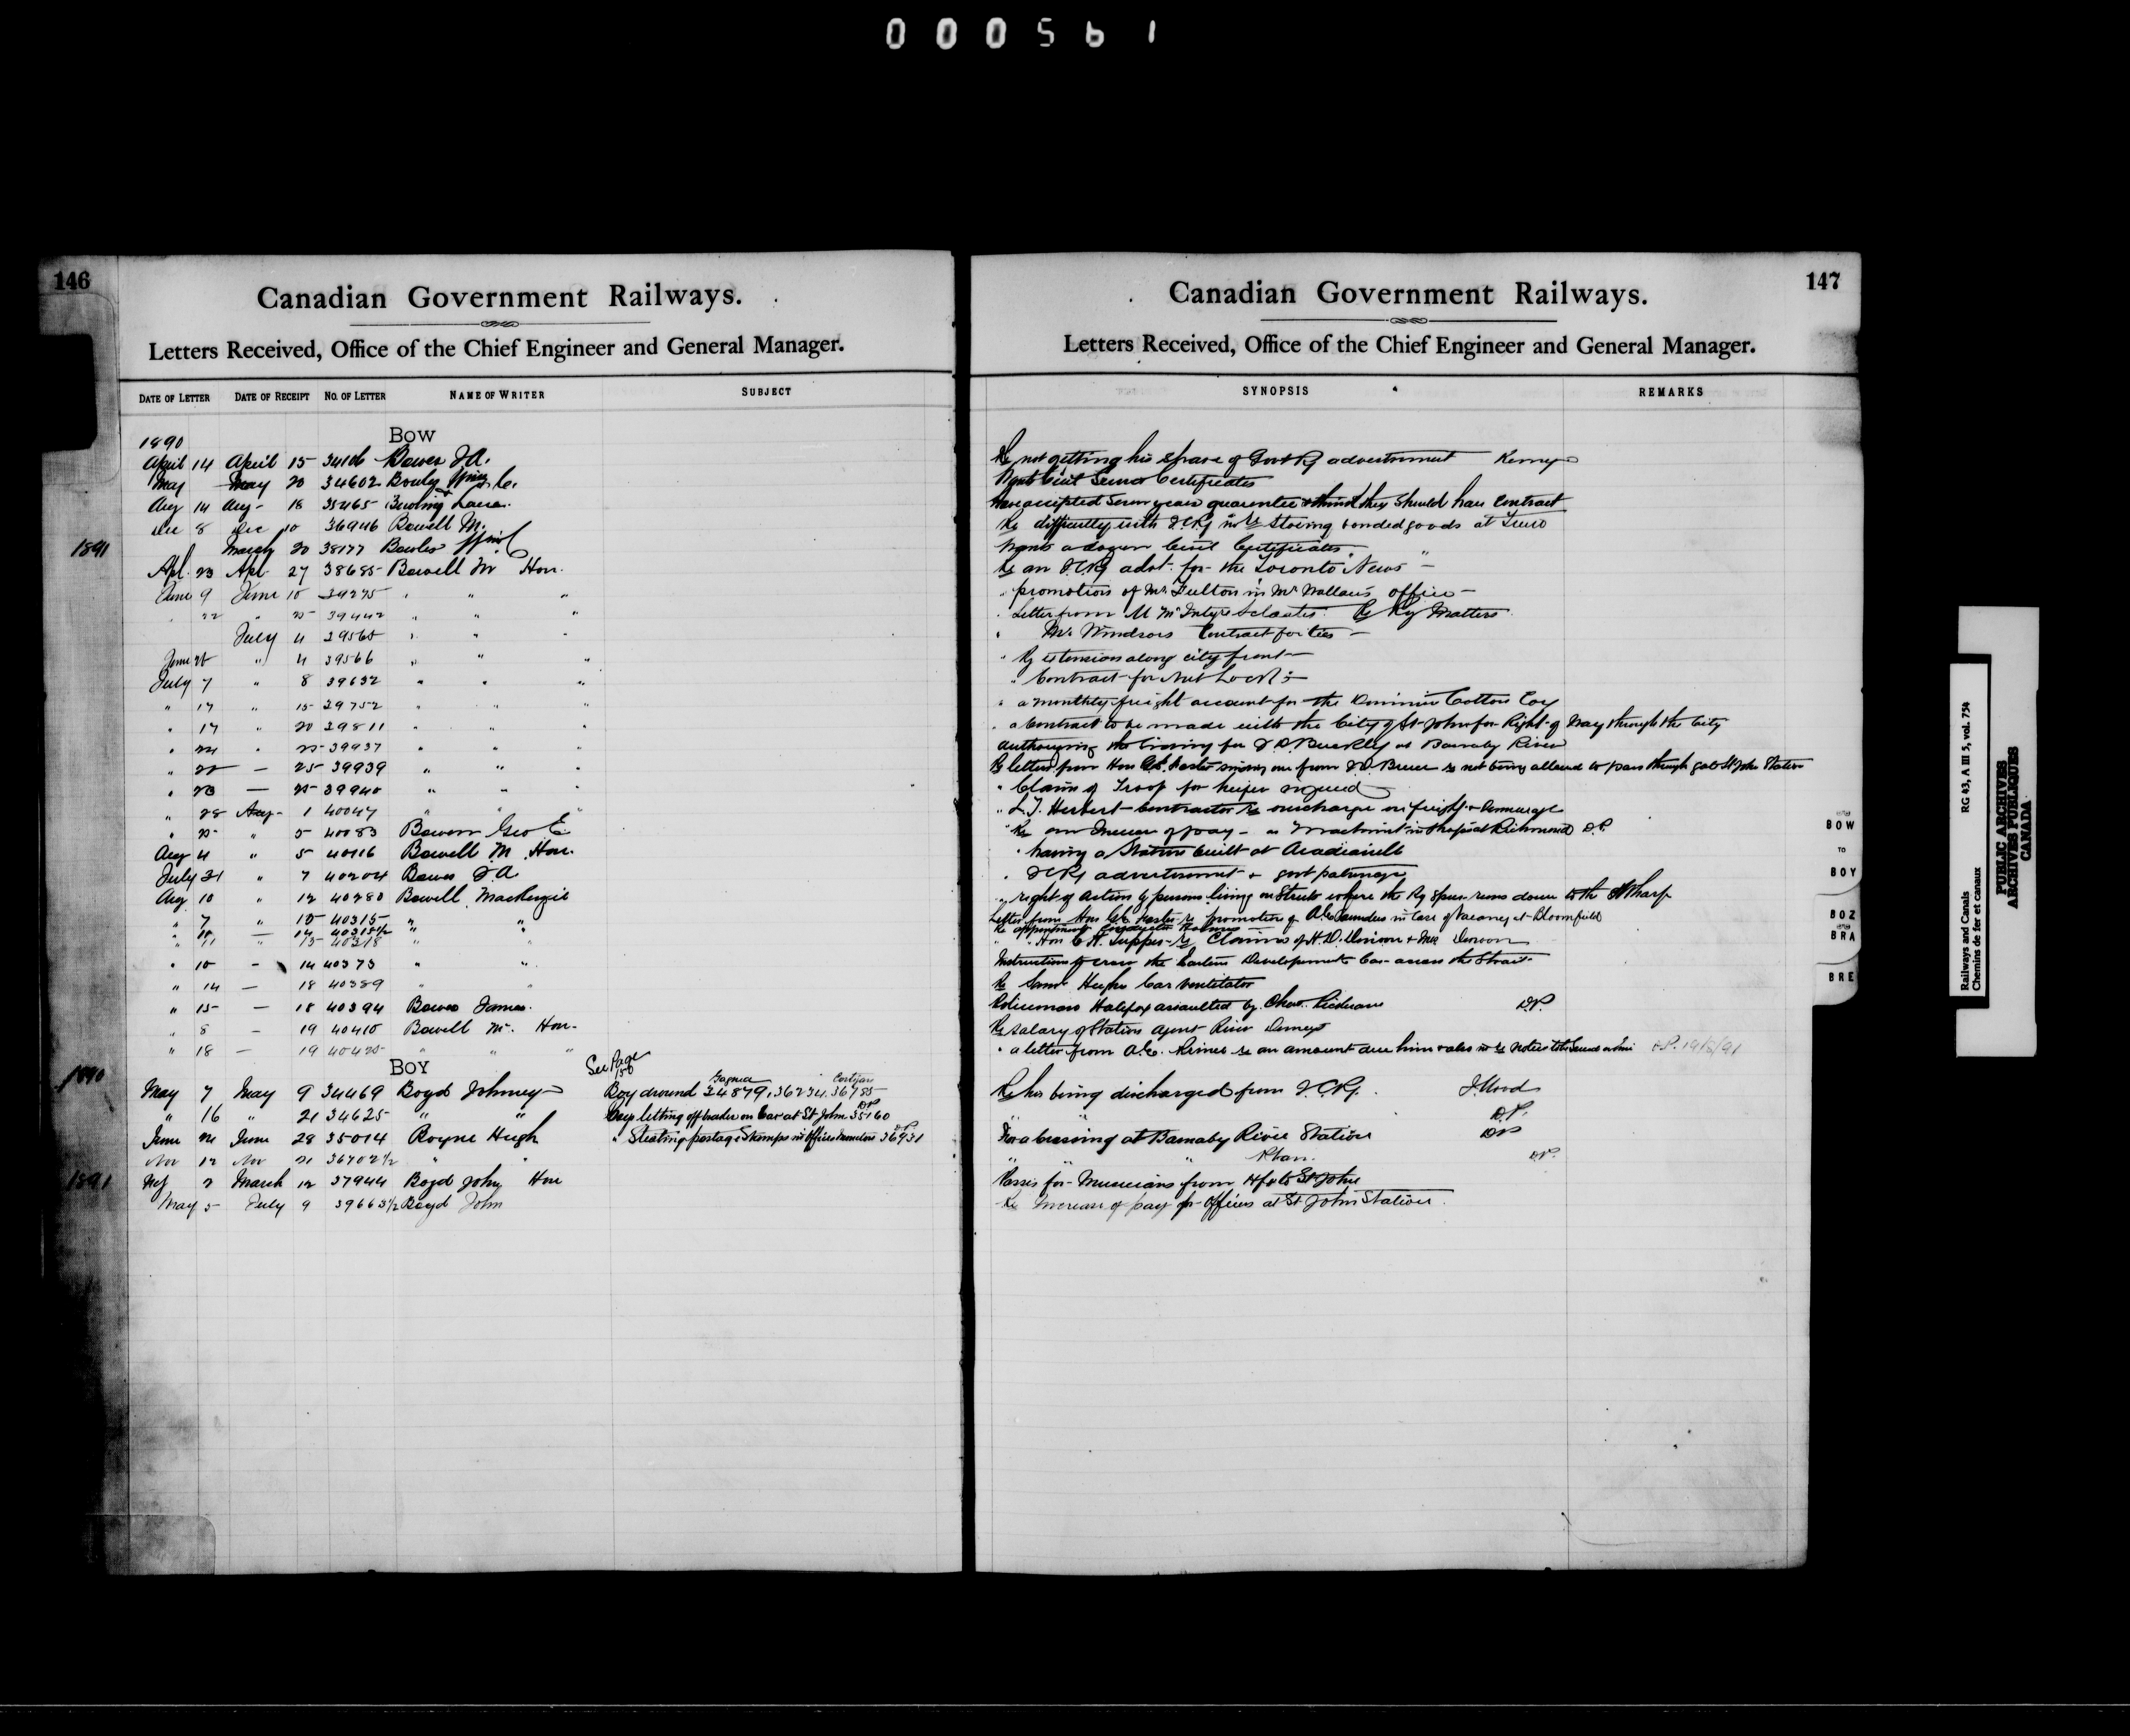 000561
146
Canadian Government Railways.
Letters Received, Office of the Chief Engineer and General Manager.
DATE OF LETTER DATE OF RECEIPT NO. OF LETTER NAME OF WRITER SUBJECT
1890 BOW
April 14 April 15 34106 Bowes J.A.
May May 20 34602
Aug 14 Aug 18 35465 Bowling
Dec 8 Dec 10 36946 Bowell M.
1891 March 20 38177 Bowles
Apl. 23 Apl 27 38685 Bowell M Hon.
June 9 June 10 39275 " " "
" 22 " 25 39442 " " "
July 4 39565 " " "
June " 4 39566 " " "
July 7 " 8 39632 " " "
" 14 " 15 39752 " " "
" 17 " 20 39811 " " "
" 24 " 25 39937 " " "
" 22 — 25 39939 " " "
" 23 — 25 39940 " " "
" 28 Aug 1 40047 " "
" 25 " 5 40083 Geo E.
Aug 4 " 5 40116 Bowell M Hon.
July 31 " 7 40204 Bowes J A
Aug 10 " 12 40280 Bowell Mackenzie
" 7 " 15 40315 " "
" — 14 40315½ "
" 11 " 15 40318 " "
" 10 - 14 40373 " "
" 14 — 18 40389 " "
" 15 — 18 40394 Bowes James.
" 8 — 19 40410 Bowell M. Hon.
" 18 — 19 40425 " " "
BOY See Page 156
1890
May 7 May 9 34469 Boyd Johnney Boy drowned 34879, 36234, 36785
" 16 " 21 34625 " " Boys letting off brake on Car at St John 35160
June June 28 35014 Boyne Hugh " Stealing postage Stamps in Offices 36931
Nov 12 Nov 21 36702½ " "
1891 March 12 37944 Boyd John Hon
May 5 July 9 39663½ Boyd John
147
Canadian Government Railways.
Letters Received, Office of the Chief Engineer and General Manager.
SYNOPSIS REMARKS
Re not getting his share of Govt Ry advertisement
Want Civil Service Certificates
Have accepted Seven years guarantee & think they should have Contract
Re difficulty with I.C.Ry in re Storing bonded goods at Truro
Wants a dozen Civil Certificates "
Re an I.C.Ry advt. for the Toronto News —
" promotion of Mr Fulton in Mr Wallace's office —
" Letter from M McIntyre Re Ry Matters
" Mr Windsors Contract for ties —
" Ry extension along city front —
" Contract for Nut Locks —
" a monthly freight account for the Dominion Cotton Coy
" a Contract to be made with the City of St John for Right of Way through the City
Authorizing the siding for Buckley at Barnaby River
Re letter from Hon Foster one from Bruce re not being allowed to pass through gate St John Station
" Claim of Troop for heifer injured
" L.T. Herbert Contractor re overcharge on freight & demurrage
" Re an Increase of pay as Machinist in Shops at Richmond D.P.
" having a Station built at
" I.C.Ry advertisement & govt patronage
" right of Action by persons living on Streets where the Ry Spur runs down to the Wharf
Letter from Hon Foster re promotion of Saunders in Case of Vacancy at Bloomfield
Re appointment Conductor
" Hon C.H. Tupper re Claims of
Instructions to cross the Eastern Development Co. across the Strait
Re Saml Hughes Car ventilator
Policeman Halifax assaulted by D.P.
Re salary of Station Agent River
" a letter from re an amount due him D.P. 19/8/91
Re his being discharged from I.C.Ry. J. Wood
" " D.P.
For a crossing at Barnaby River Station D.P.
" " " D.P.
Passes for Musicians from Hfx to St John
Re Increase of pay for Officers at St John Station
BOW
TO
BOY
BOZ
BRA
BRE
Railways and Canals RG 43, A III 5, vol. 754
Chemins de fer et canaux
PUBLIC ARCHIVES
ARCHIVES PUBLIQUES
CANADA